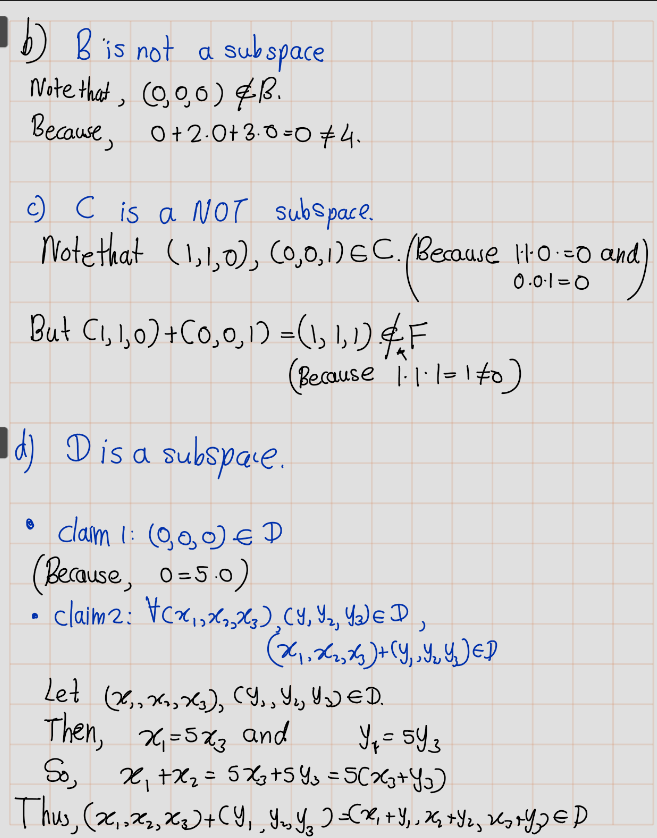 b) B is not a subspace
Note that, (0,0,0) ∉ B.
Because, 0+2·0+3·0=0 ≠ 4.
c) C is a NOT subspace.
Note that (1,1,0), (0,0,1) ∈ C. (Because 1·1·0·=0 and)
0·0·1=0
But (1,1,0)+(0,0,1) =(1,1,1) ∉ F
(Because 1·1·1=1≠0)
d) D is a subspace.
• claim 1: (0,0,0) ∈ D
(Because, 0=5·0)
• claim2: ∀(x₁,x₂,x₃), (y₁,y₂,y₃)∈D,
(x₁,x₂,x₃)+(y₁,y₂,y₃)∈D
Let (x₁,x₂,x₃), (y₁,y₂,y₃)∈D.
Then, x₁=5x₃ and y₁=5y₃
So, x₁+x₂=5x₃+5y₃=5(x₃+y₃)
Thus, (x₁,x₂,x₃)+(y₁,y₂,y₃)=(x₁+y₁,x₂+y₂,x₃+y₃)∈D